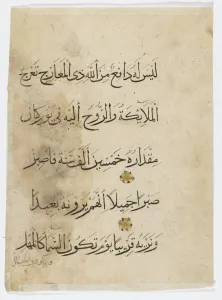 لَيْسَ لَهُ دَافِعٌ مِنَ اللَّهِ ذِي الْمَعَارِجِ تَعْرُجُ
الْمَلَائِكَةُ وَالرُّوحُ إِلَيْهِ فِي يَوْمٍ كَانَ
مِقْدَارُهُ خَمْسِينَ أَلْفَ سَنَةٍ فَاصْبِرْ
صَبْرًا جَمِيلًا إِنَّهُمْ يَرَوْنَهُ بَعِيدًا
وَنَرَاهُ قَرِيبًا يَوْمَ تَكُونُ السَّمَاءُ كَالْمُهْلِ
وتكون الجبال